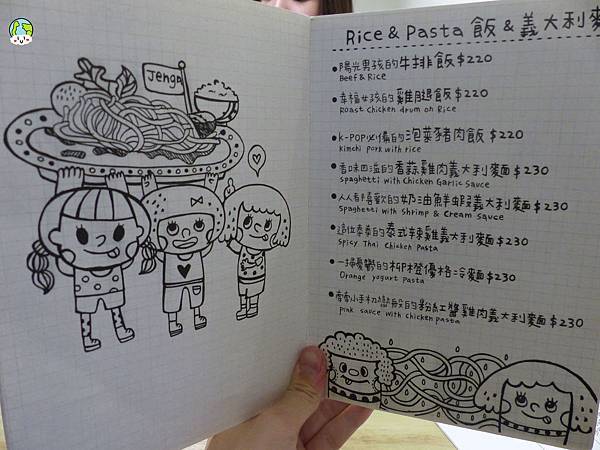 Jenga
Rice & Pasta 飯 & 義大利麵
陽光男孩的牛排飯 $220
Beef & Rice
幸福女孩的雞腿飯 $220
Roast Chicken drum on Rice
K-POP必備的泡菜豬肉飯 $220
kimchi pork with rice
香味四溢的香蒜雞肉義大利麵 $230
Spaghetti with Chicken Garlic Sauce
人人都喜歡的奶油鮮蝦義大利麵 $230
Spaghetti with Shrimp & Cream Sauce
泰式辣雞義大利麵 $230
Spicy Thai Chicken Pasta
一掃憂鬱的柳橙優格冷麵 $230
Orange yogurt pasta
粉紅醬雞肉義大利麵 $230
pink sauce with chicken pasta